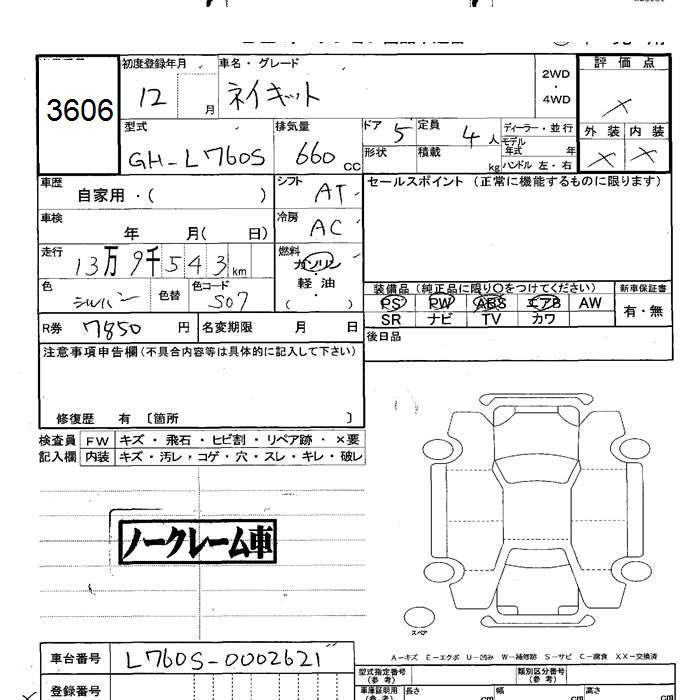 3606
初度登録年月 車名・グレード 2WD ・ 4WD 評価点
12 月 ネイキット ×
型式 排気量 ドア 5 定員 4人 ディーラー・並行 外装 内装
GH-L760S 660 cc 形状 積載 kg モデル年式 年 × ×
ハンドル 左・右
車歴 自家用・( ) シフト AT セールスポイント (正常に機能するものに限ります)
車検 年 月( 日) 冷房 AC
走行 13万9千543km 燃料 ガソリン・軽油 ( )
色 シルバー 色替 色コード S07 装備品 (純正品に限り○をつけてください) 新車保証書
PS PW ABS エアB AW 有・無
R券 7850円 名変期限 月 日 SR ナビ TV カワ
注意事項申告欄(不具合内容等は具体的に記入して下さい) 後日品
修復歴 有 〔箇所 〕
検査員 FW キズ・飛石・ヒビ割・リペア跡・×要
記入欄 内装 キズ・汚レ・コゲ・穴・スレ・キレ・破レ
ノークレーム車
スペア
A−キズ E−エクボ U−凹み W−補修跡 S−サビ C−腐食 XX−交換済
車台番号 L760S-0002621
型式指定番号 (参考) 類別区分番号 (参考)
登録番号 車庫証明用 (参考) 長さ cm 幅 cm 高さ cm